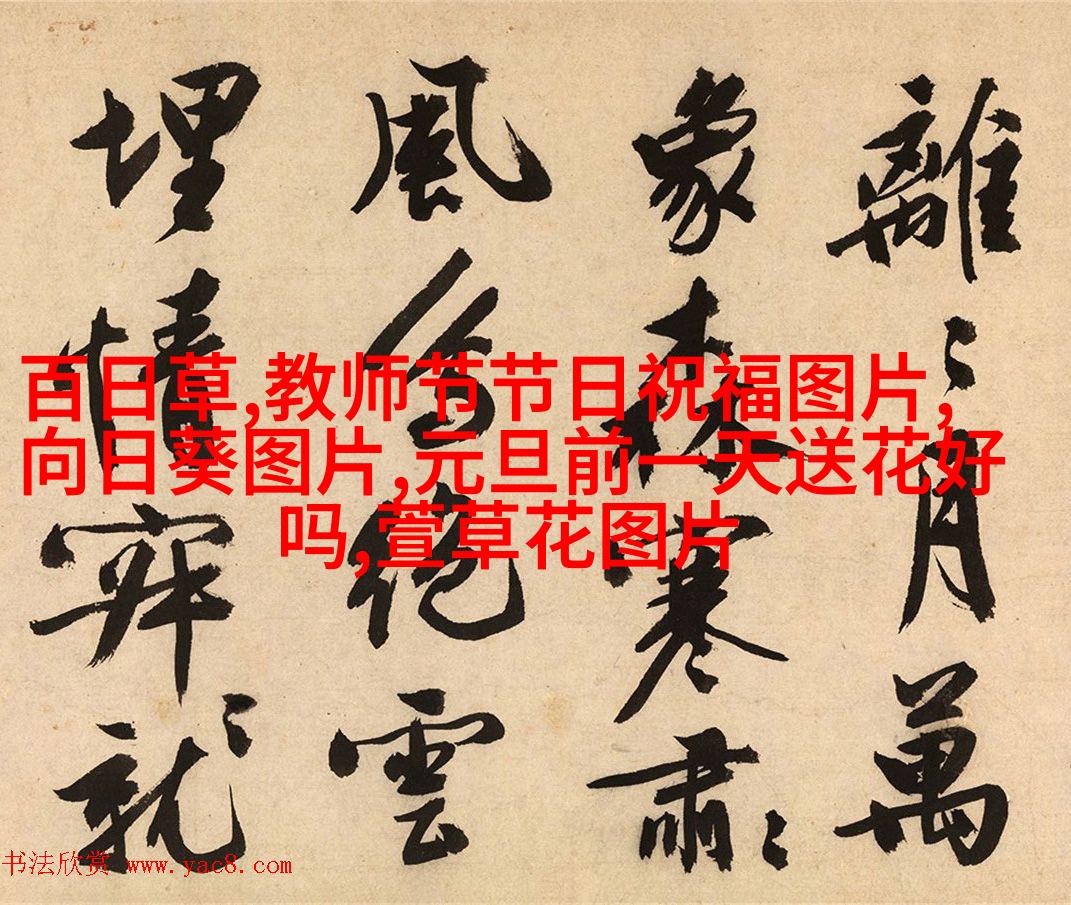 離〻月萬
象森寒肅〻
風絶雲
埋情就〻
百日草,教师节节日祝福图片,
向日葵图片,元旦前一天送花好
吗,萱草花图片
书法欣赏 www.yac8.com